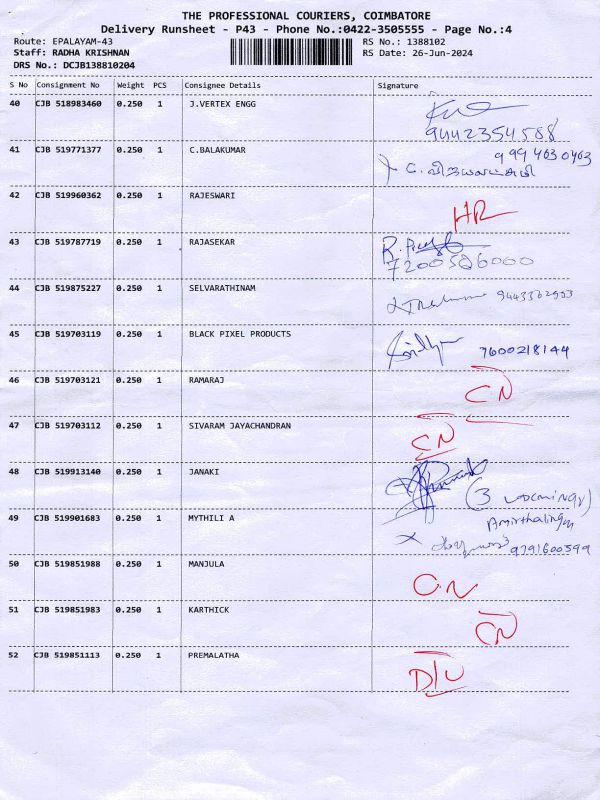 THE PROFESSIONAL COURIERS, COIMBATORE
Delivery Runsheet - P43 - Phone No.:0422-3505555 - Page No.:4
Route: EPALAYAM-43 RS No.: 1388102
Staff: RADHA KRISHNAN RS Date: 26-Jun-2024
DRS No.: DCJB138810204
S No Consignment No Weight PCS Consignee Details Signature
40 CJB 518983460 0.250 1 J.VERTEX ENGG
9442354588
41 CJB 519771377 0.250 1 C.BALAKUMAR
9994630463
C.
42 CJB 519960362 0.250 1 RAJESWARI
HR
43 CJB 519787719 0.250 1 RAJASEKAR
7200526000
44 CJB 519875227 0.250 1 SELVARATHINAM
45 CJB 519703119 0.250 1 BLACK PIXEL PRODUCTS
7600218144
46 CJB 519703121 0.250 1 RAMARAJ
CN
47 CJB 519703112 0.250 1 SIVARAM JAYACHANDRAN
CN
48 CJB 519913140 0.250 1 JANAKI
49 CJB 519901683 0.250 1 MYTHILI A
9791600599
50 CJB 519851988 0.250 1 MANJULA
CN
51 CJB 519851983 0.250 1 KARTHICK
CN
52 CJB 519851113 0.250 1 PREMALATHA
D/U